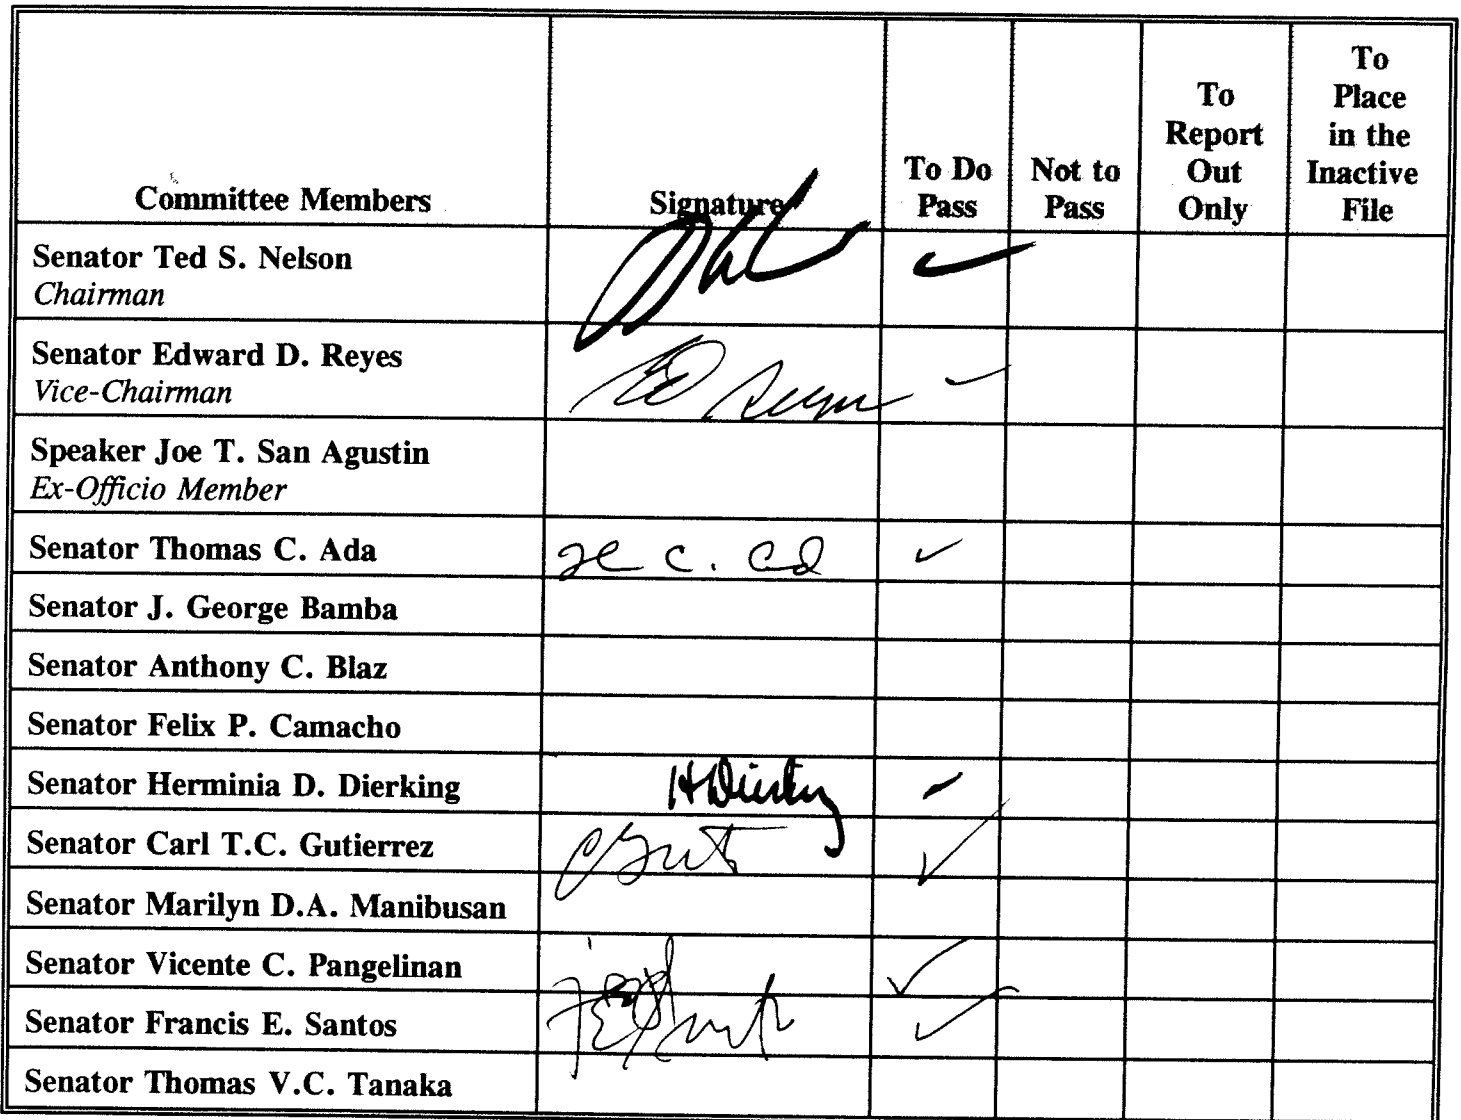 Committee Members Signature To Do Pass Not to Pass To Report Out Only To Place in the Inactive File
Senator Ted S. Nelson
Chairman
Senator Edward D. Reyes
Vice-Chairman
Ed Reyes
Speaker Joe T. San Agustin
Ex-Officio Member
Senator Thomas C. Ada
Senator J. George Bamba
Senator Anthony C. Blaz
Senator Felix P. Camacho
Senator Herminia D. Dierking HDierking
Senator Carl T.C. Gutierrez
Senator Marilyn D.A. Manibusan
Senator Vicente C. Pangelinan
Senator Francis E. Santos
Senator Thomas V.C. Tanaka